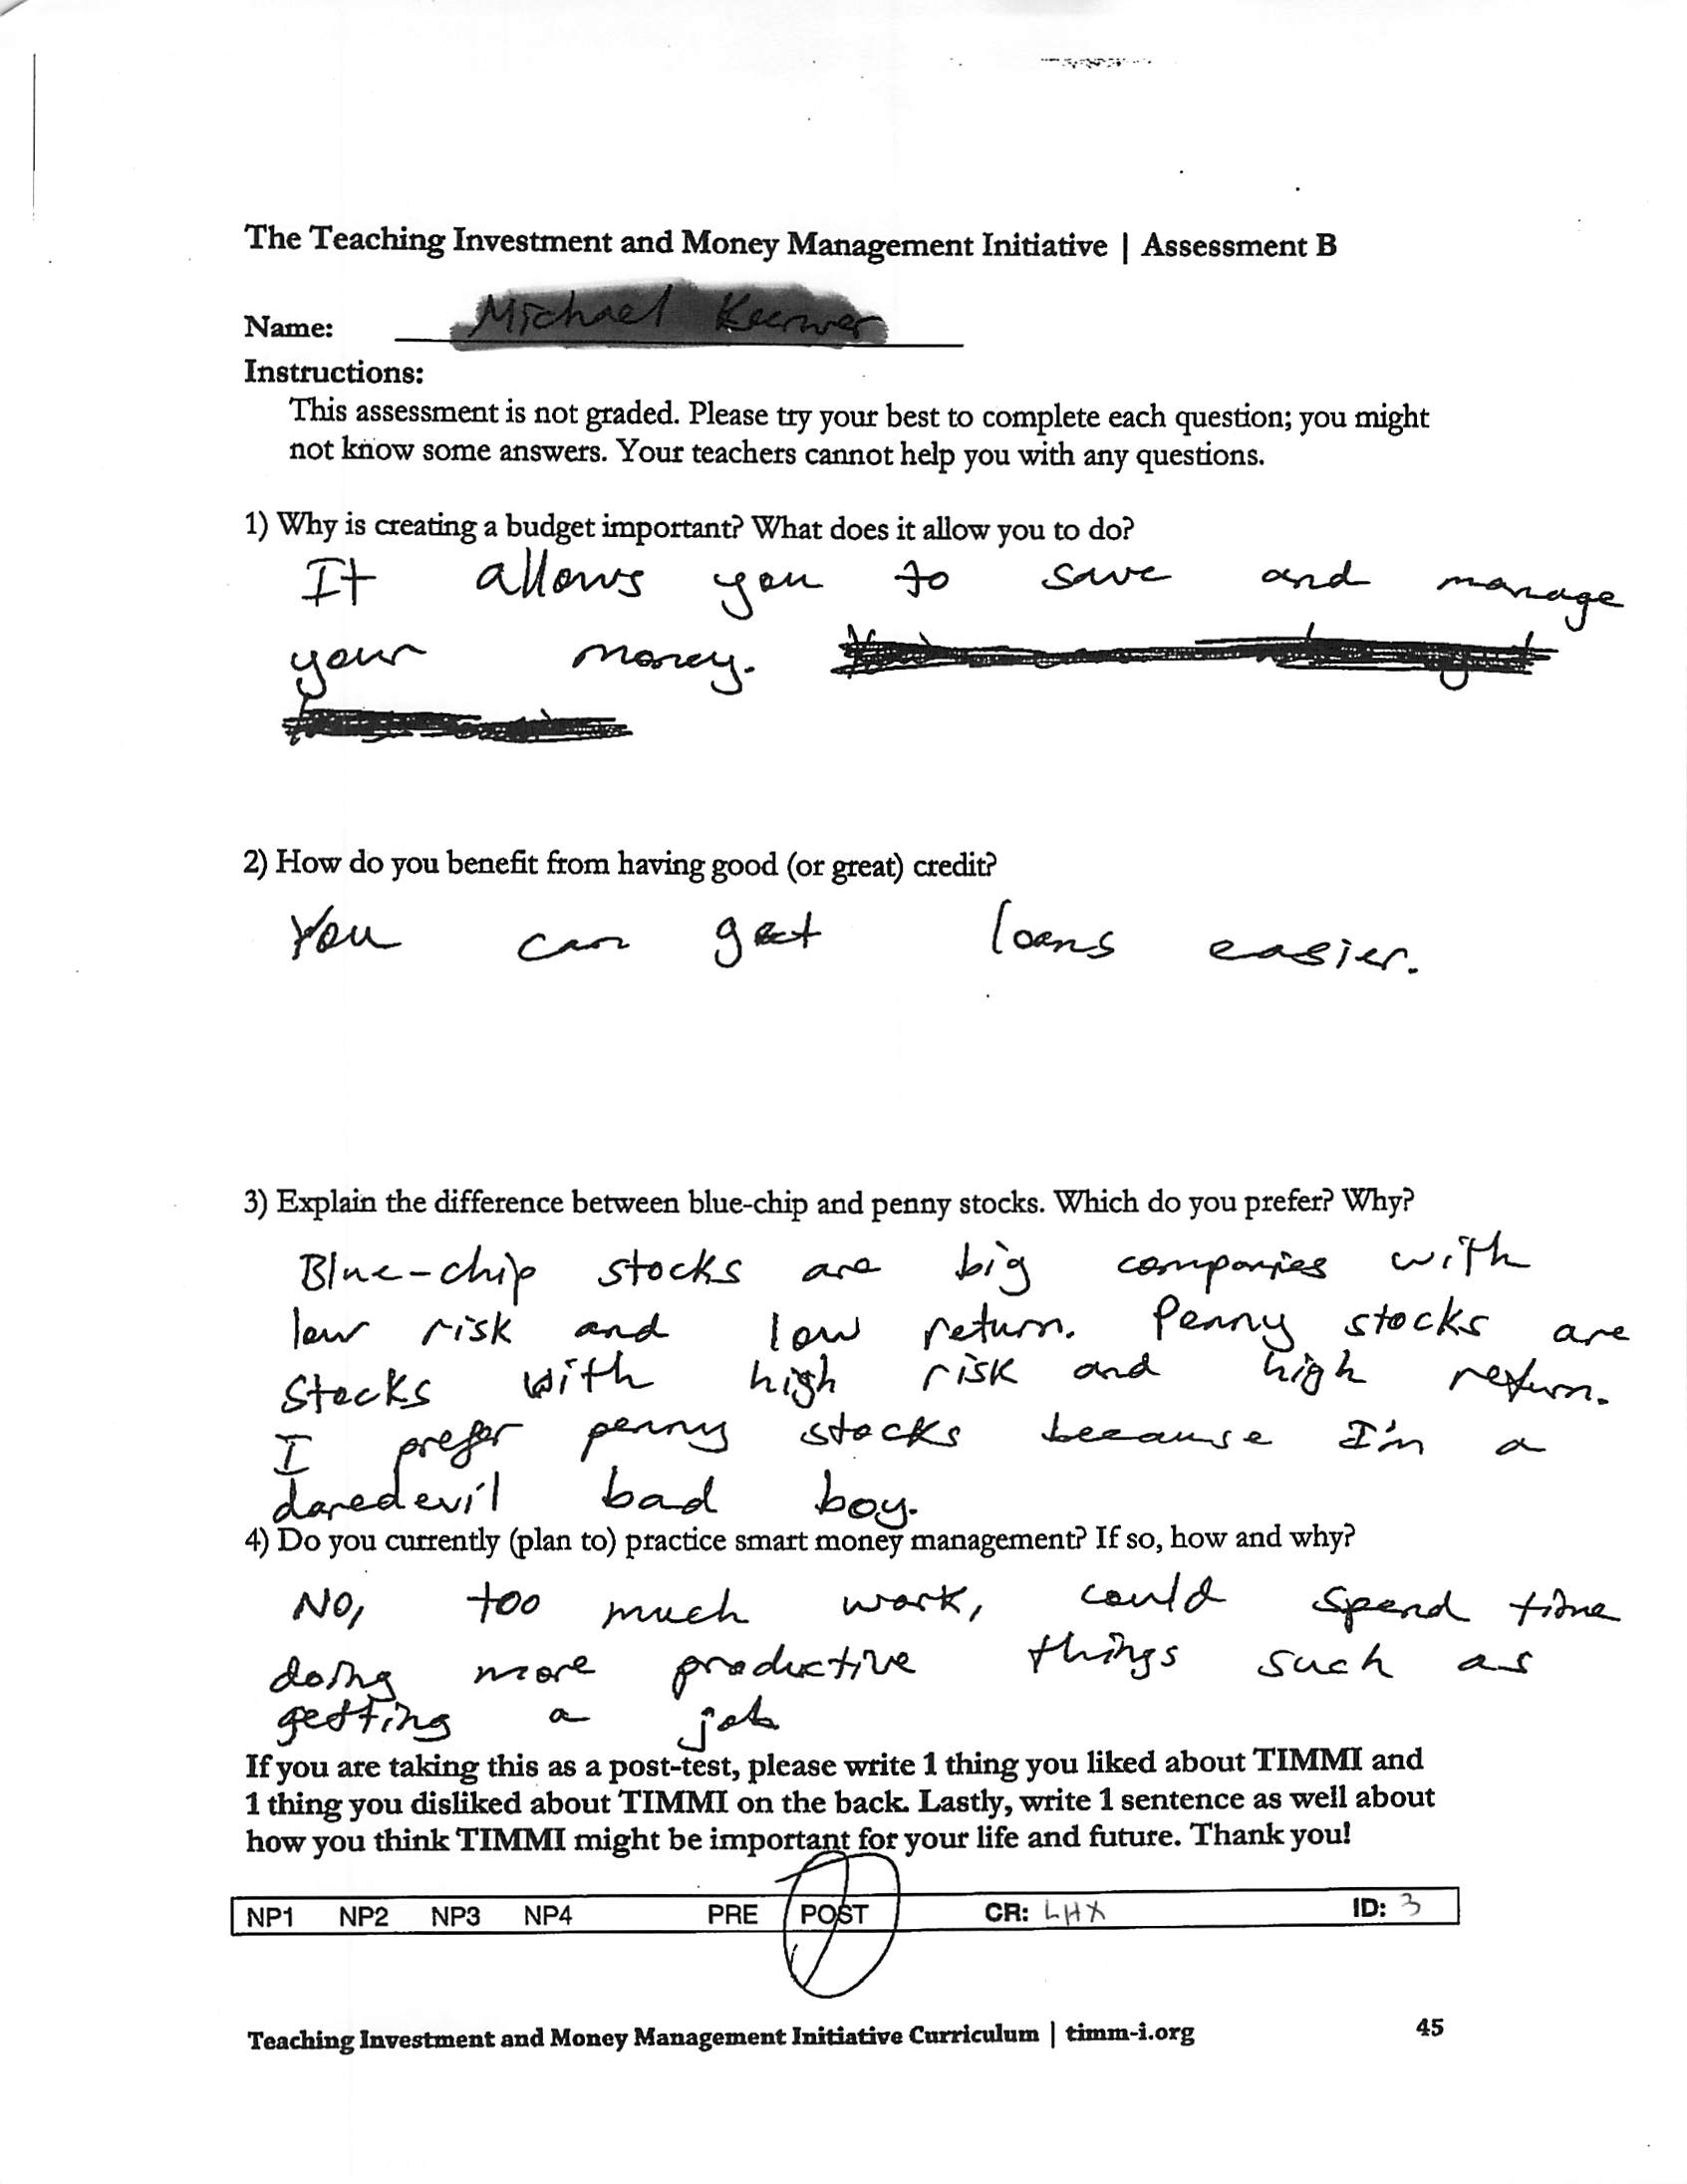 The Teaching Investment and Money Management Initiative | Assessment B
Name: Michael
Instructions:
This assessment is not graded. Please try your best to complete each question; you might
not know some answers. Your teachers cannot help you with any questions.
1) Why is creating a budget important? What does it allow you to do?
It allows you to save and manage
your money.
2) How do you benefit from having good (or great) credit?
You can get loans easier.
3) Explain the difference between blue-chip and penny stocks. Which do you prefer? Why?
Blue-chip stocks are big companies with
low risk and low return. Penny stocks are
stocks with high risk and high return.
I prefer penny stocks because I'm a
daredevil bad boy.
4) Do you currently (plan to) practice smart money management? If so, how and why?
No, too much work, could spend time
doing more productive things such as
getting a job
If you are taking this as a post-test, please write 1 thing you liked about TIMMI and
1 thing you disliked about TIMMI on the back. Lastly, write 1 sentence as well about
how you think TIMMI might be important for your life and future. Thank you!
NP1 NP2 NP3 NP4 PRE POST CR: LHX ID: 3
Teaching Investment and Money Management Initiative Curriculum | timm-i.org 45